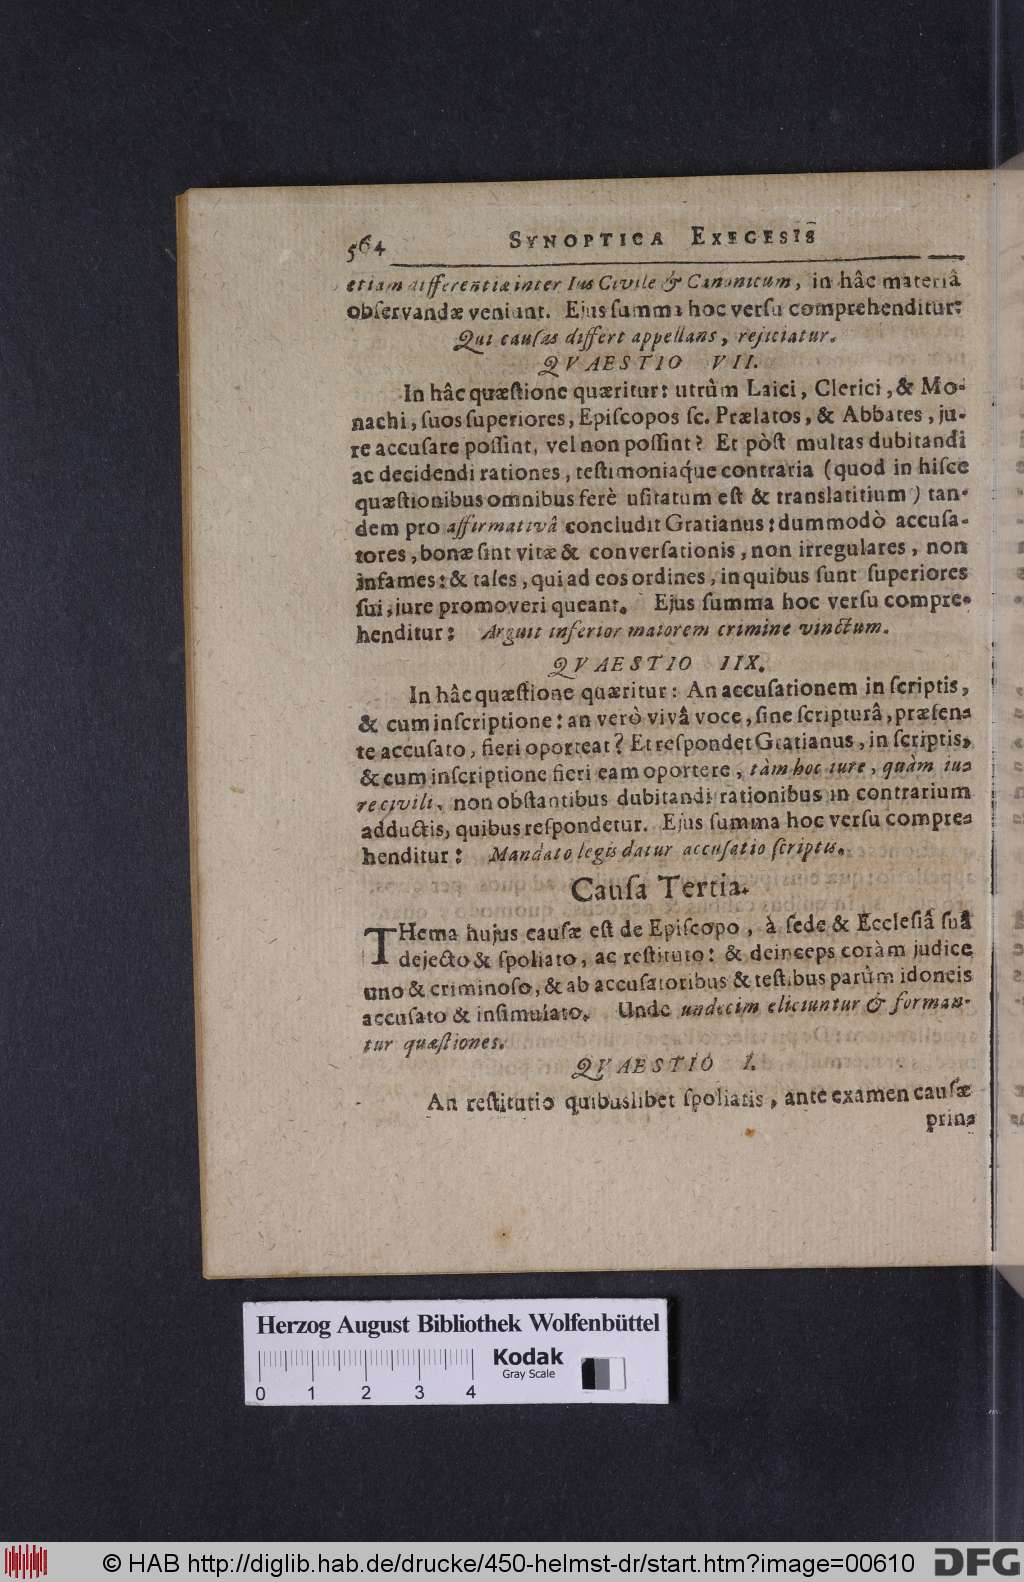 564 SYNOPTICA EXEGESIS
etiam differentiæ inter Ius Civile & Canonicum, in hâc materiâ
obſervandæ veniunt. Ejus ſumma hoc verſu comprehenditur:
Qui cauſas differt appellans, rejiciatur.
QVAESTIO VII.
In hâc quæſtione quæritur: utrùm Laici, Clerici, & Mo-
nachi, ſuos ſuperiores, Epiſcopos ſc. Prælatos, & Abbates, ju-
re accuſare poſſint, vel non poſſint? Et pòſt multas dubitandi
ac decidendi rationes, teſtimoniaq́ue contraria (quod in hiſce
quæſtionibus omnibus ferè uſitatum eſt & translatitium) tan-
dem pro affirmativâ concludit Gratianus: dummodò accuſa-
tores, bonæ ſint vitæ & converſationis, non irregulares, non
infames: & tales, qui ad eos ordines, in quibus ſunt ſuperiores
ſui, jure promoveri queant. Ejus ſumma hoc verſu compre-
henditur: Arguit inferior maiorem crimine vinctum.
QVAESTIO IIX.
In hâc quæſtione quæritur: An accuſationem in ſcriptis,
& cum inſcriptione: an verò vivâ voce, ſine ſcripturâ, præſen-
te accuſato, fieri oporteat? Et reſpondet Gratianus, in ſcriptis,
& cum inſcriptione fieri eam oportere, tàm hoc iure, quàm iu-
re civili, non obſtantibus dubitandi rationibus in contrarium
adductis, quibus reſpondetur. Ejus ſumma hoc verſu compre-
henditur: Mandato legis datur accuſatio ſcriptis.
Cauſa Tertia.
THema hujus cauſæ eſt de Epiſcopo, à ſede & Eccleſiâ ſuâ
dejecto & ſpoliato, ac reſtituto: & deinceps coràm judice
uno & criminoſo, & ab accuſatoribus & teſtibus parùm idoneis
accuſato & inſimulato. Unde undecim eliciuntur & forman-
tur quæſtiones.
QVAESTIO I.
An reſtitutio quibuslibet ſpoliatis, ante examen cauſæ
prin-
Herzog August Bibliothek Wolfenbüttel
Kodak
Gray Scale
0 1 2 3 4
© HAB http://diglib.hab.de/drucke/450-helmst-dr/start.htm?image=00610
DFG